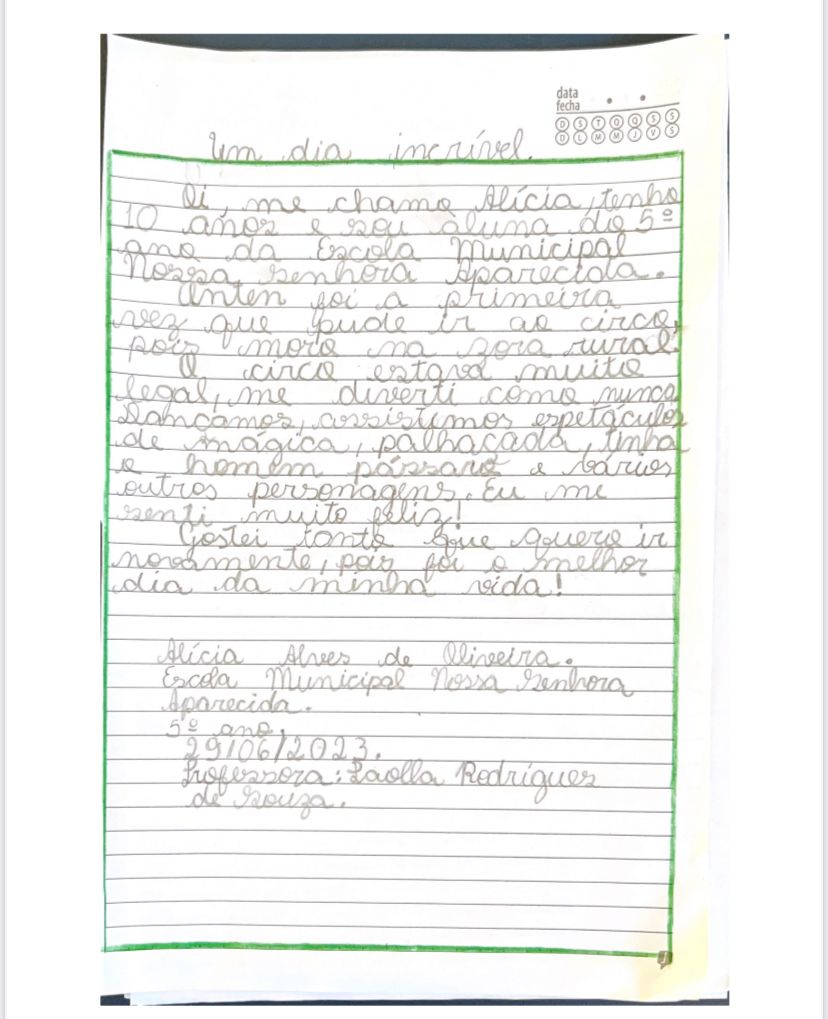 data
fecha
D S T Q Q S S
D L M M J V S
Um dia incrível.
Oi, me chamo Alícia, tenho
10 anos e sou aluna do 5º
ano da Escola Municipal
Nossa Senhora Aparecida.
Ontem foi a primeira
vez que pude ir ao circo,
pois moro na zona rural.
O circo estava muito
legal, me diverti como nunca
Dançamos, assistimos espetáculos
de mágica, palhaçada, tinha
o homem pássaro e vários
outros personagens. Eu me
senti muito feliz!
Gostei tanto que quero ir
novamente, pois foi o melhor
dia da minha vida!
Alícia Alves de Oliveira.
Escola Municipal Nossa Senhora
Aparecida.
5º ano.
29/06/2023.
Professora: Paolla Rodrigues
de Souza.